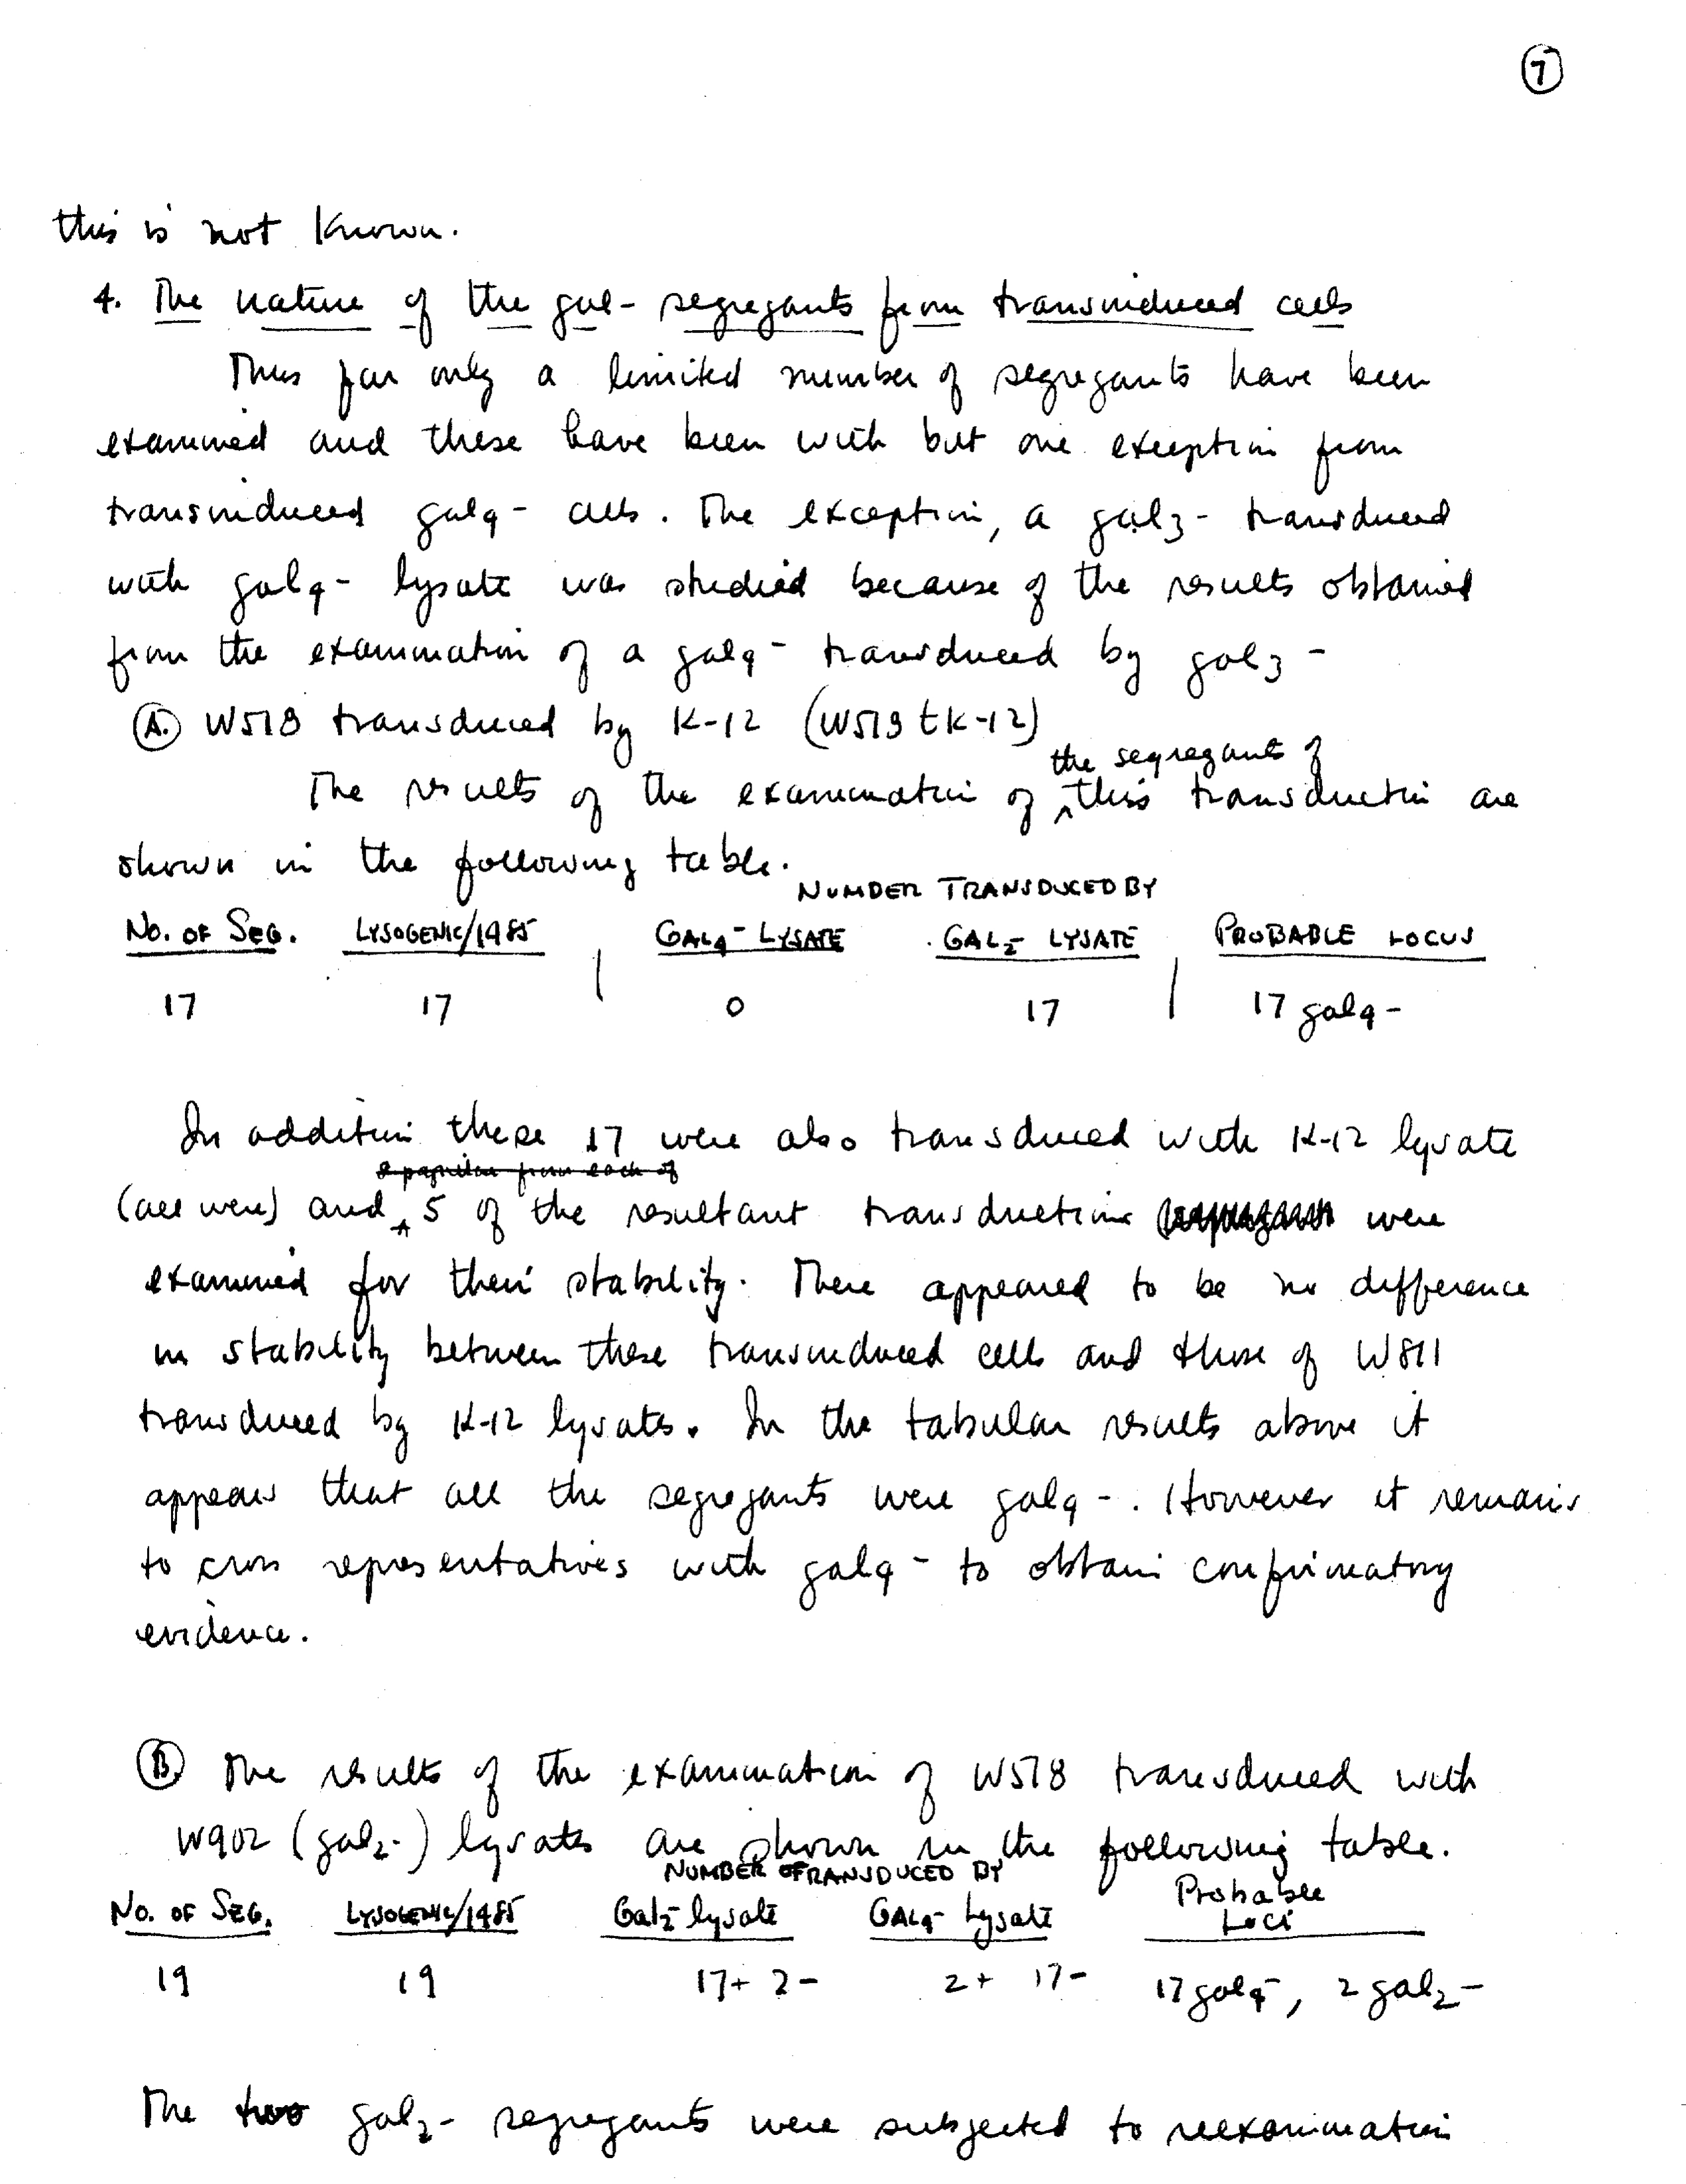 7
this is not known.
4. The nature of the gal- segregants from transinduced cells
Thus far only a limited number of segregants have been
examined and these have been with but one exception from
transinduced gal4- cells. The exception, a gal3- transduced
with gal4- lysate was studied because of the results obtained
from the examination of a gal4- transduced by gal3-
A. W518 transduced by K-12 (W518 t K-12)
the segregants of
The results of the examination of ^ this transduction are
shown in the following table.
NUMBER TRANSDUCED BY
No. OF SEG. LYSOGENIC/1485 GAL4- LYSATE GAL2- LYSATE PROBABLE LOCUS
17 17 0 17 17 gal4-
In addition these 17 were also transduced with K-12 lysate
from each of
(all were) and ^ 5 of the resultant transductions were
examined for their stability. There appeared to be no difference
in stability between these transinduced cells and those of W811
transduced by K-12 lysates. In the tabular results above it
appears that all the segregants were gal4-. However it remains
to cross representatives with gal4- to obtain confirmatory
evidence.
B. The results of the examination of W518 transduced with
W902 (gal2-) lysates are shown in the following table.
NUMBER TRANSDUCED BY
No. OF SEG. LYSOGENIC/1485 Gal2- lysate GAL4- Lysate Probable Loci
19 19 17+ 2- 2+ 17- 17 gal4-, 2 gal2-
The two gal2- segregants were subjected to reexamination